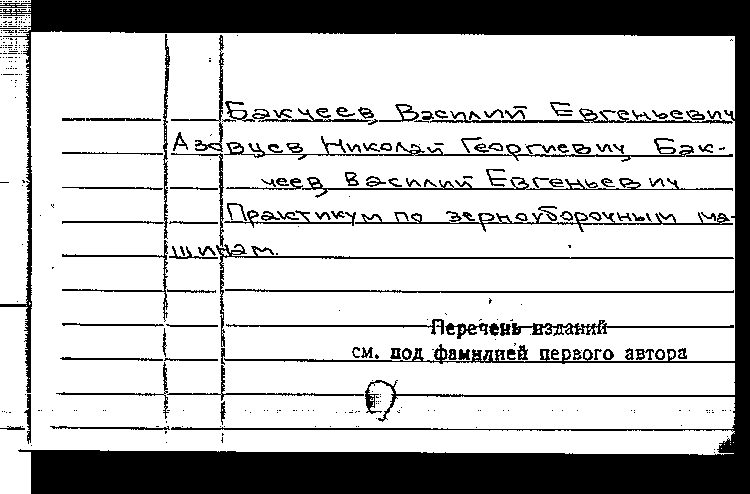 Бакчеев, Василий Евгеньевич
Азовцев, Николай Георгиевич, Бак-
чеев, Василий Евгеньевич
Практикум по зерноуборочным ма-
шинам.
Перечень изданий
см. под фамилией первого автора